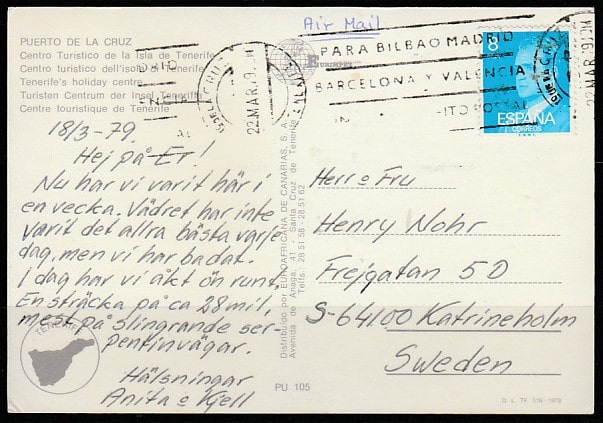 Air Mail
PUERTO DE LA CRUZ
Centro Turístico de la Isla de Tenerife
Centro turistico dell'isola di Tenerife
Tenerife's holiday centre
Turisten Centrum der Insel Teneriffa
Centre touristique de Tenerife
PARA BILBAO MADRID
BARCELONA Y VALENCIA
22 MAR 79
8
ESPAÑA
CORREOS
18/3-79.
Hej på Er!
Nu har vi varit här i
en vecka. Vädret har inte
varit det allra bästa varje
dag, men vi har badat.
I dag har vi åkt ön runt.
En sträcka på ca 28 mil,
mest på slingrande ser-
pentinvägar.
Hälsningar
Anita o Kjell
TENERIFE
Distribuido por EUROAFRICANA DE CANARIAS, S. A.
Avenida de Anaga, 41 - Santa Cruz de Tenerife
Telfs: 28 51 58 - 28 51 62
PU 105
Herr o Fru
Henry Nohr
Frejgatan 5D
S-64100 Katrineholm
Sweden